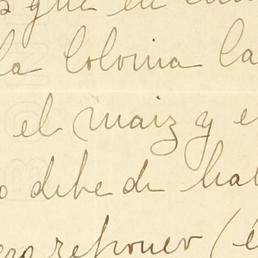 que en
la Colonia la
el maiz y e
o debe de hal
reponer (é